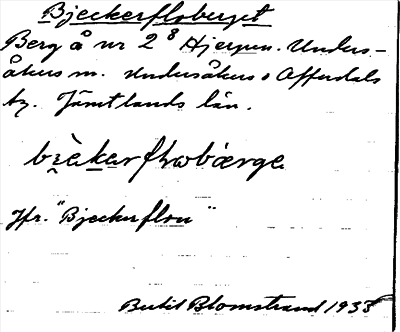 Bjeckerfloberget
Berg å nr 2⁸ Hjerpen. Unders-
åkers sn. Undersåkers o Offerdals
tg. Jämtlands län.
Jfr. "Bjeckerflon"
Bertil Blomstrand 1935